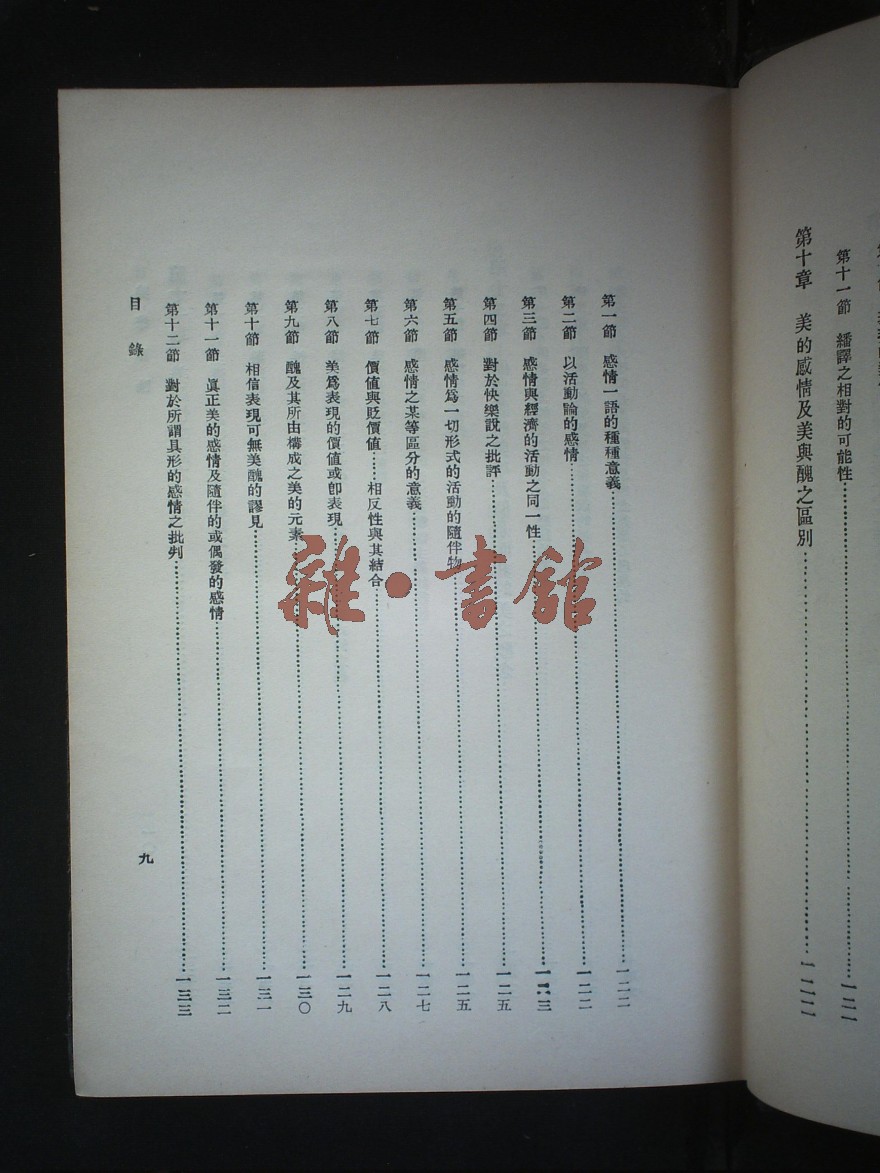 第十一節 繙譯之相對的可能性……一二一
第十章 美的感情及美與醜之區別……一二二
第一節 感情一語的種種意義……一二二
第二節 以活動論的感情……一二二
第三節 感情與經濟的活動之同一性……一二三
第四節 對於快樂說之批評……一二五
第五節 感情爲一切形式的活動的隨伴物……一二五
第六節 感情之某等區分的意義……一二七
第七節 價值與貶價值……相反性與其結合……一二八
第八節 美爲表現的價值或卽表現……一二九
第九節 醜及其所由構成之美的元素……一三〇
第十節 相信表現可無美醜的謬見……一三一
第十一節 眞正美的感情及隨伴的或偶發的感情……一三二
第十二節 對於所謂具形的感情之批判……一三三
目錄
九
雜·書館